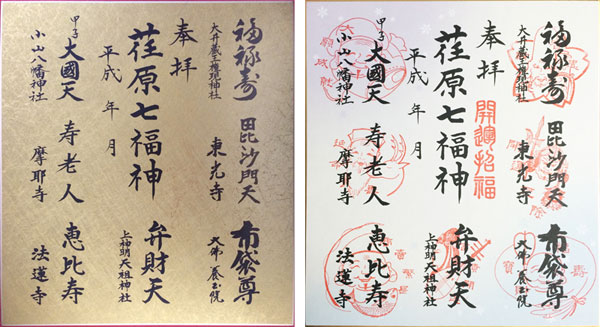 福禄寿
大井蔵王権現神社
毘沙門天
東光寺
布袋尊
大佛 養玉院
奉拝
荏原七福神
平成 年 月
弁財天
上神明天祖神社
甲子 大國天
小山八幡神社
寿老人
摩耶寺
恵比寿
法蓮寺
福禄寿
大井蔵王権現神社
毘沙門天
東光寺
布袋尊
大佛 養玉院
奉拝
開運招福
荏原七福神
平成 年 月
弁財天
上神明天祖神社
甲子 大國天
小山八幡神社
寿老人
摩耶寺
恵比寿
法蓮寺